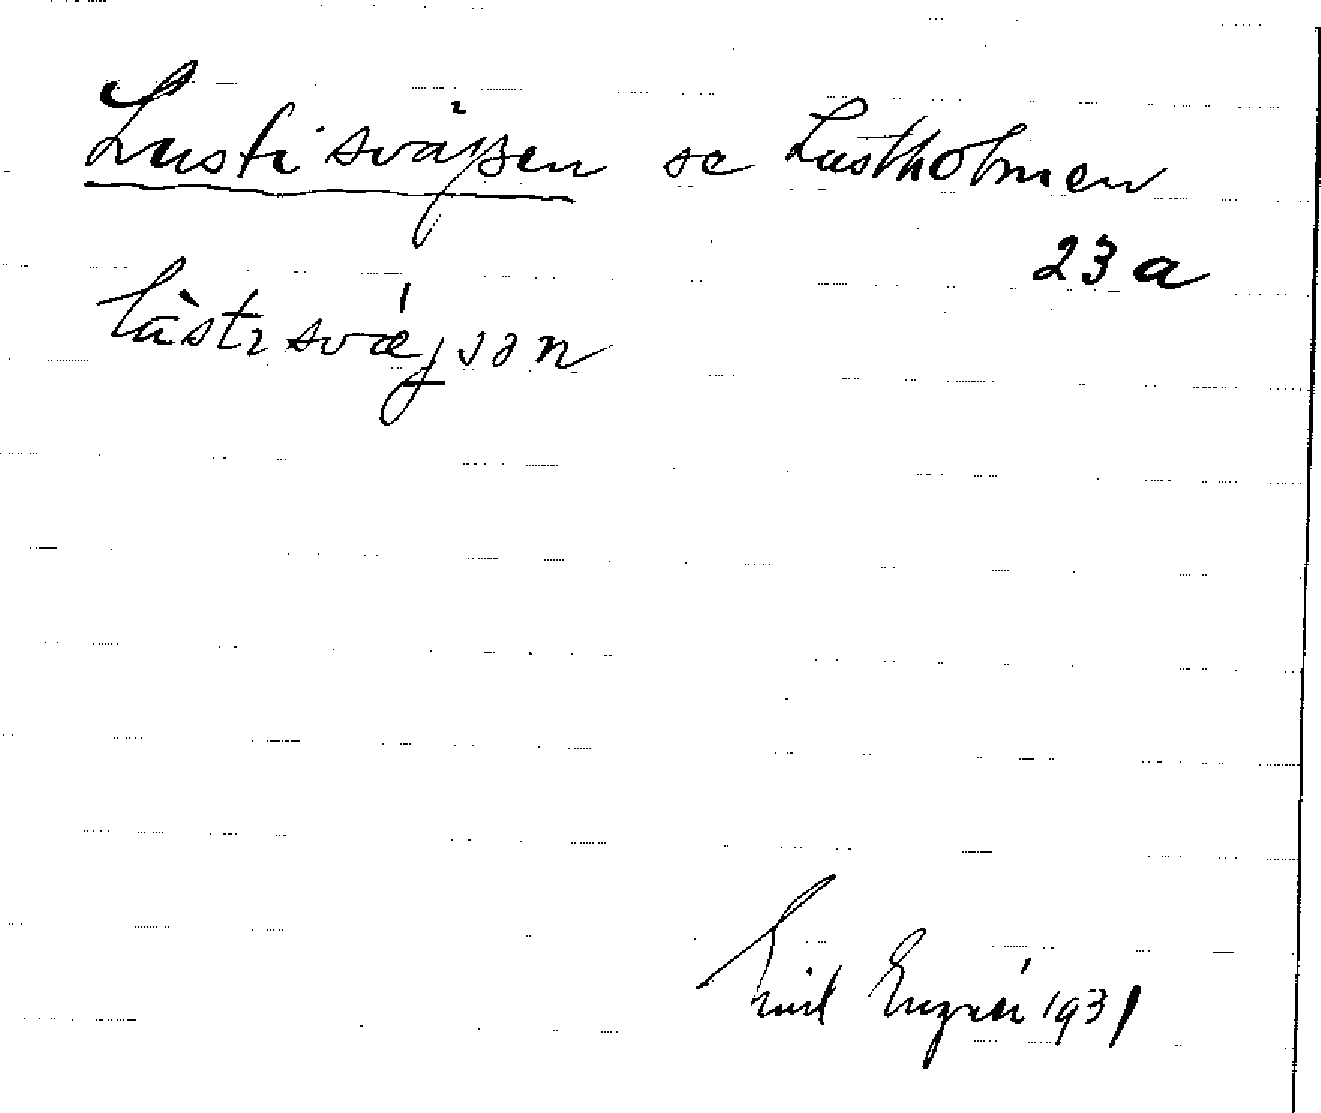 Lustisväjsen se Lustholmen
23 a
làstɩsvæ̨jsən
Emil Engnér 1931